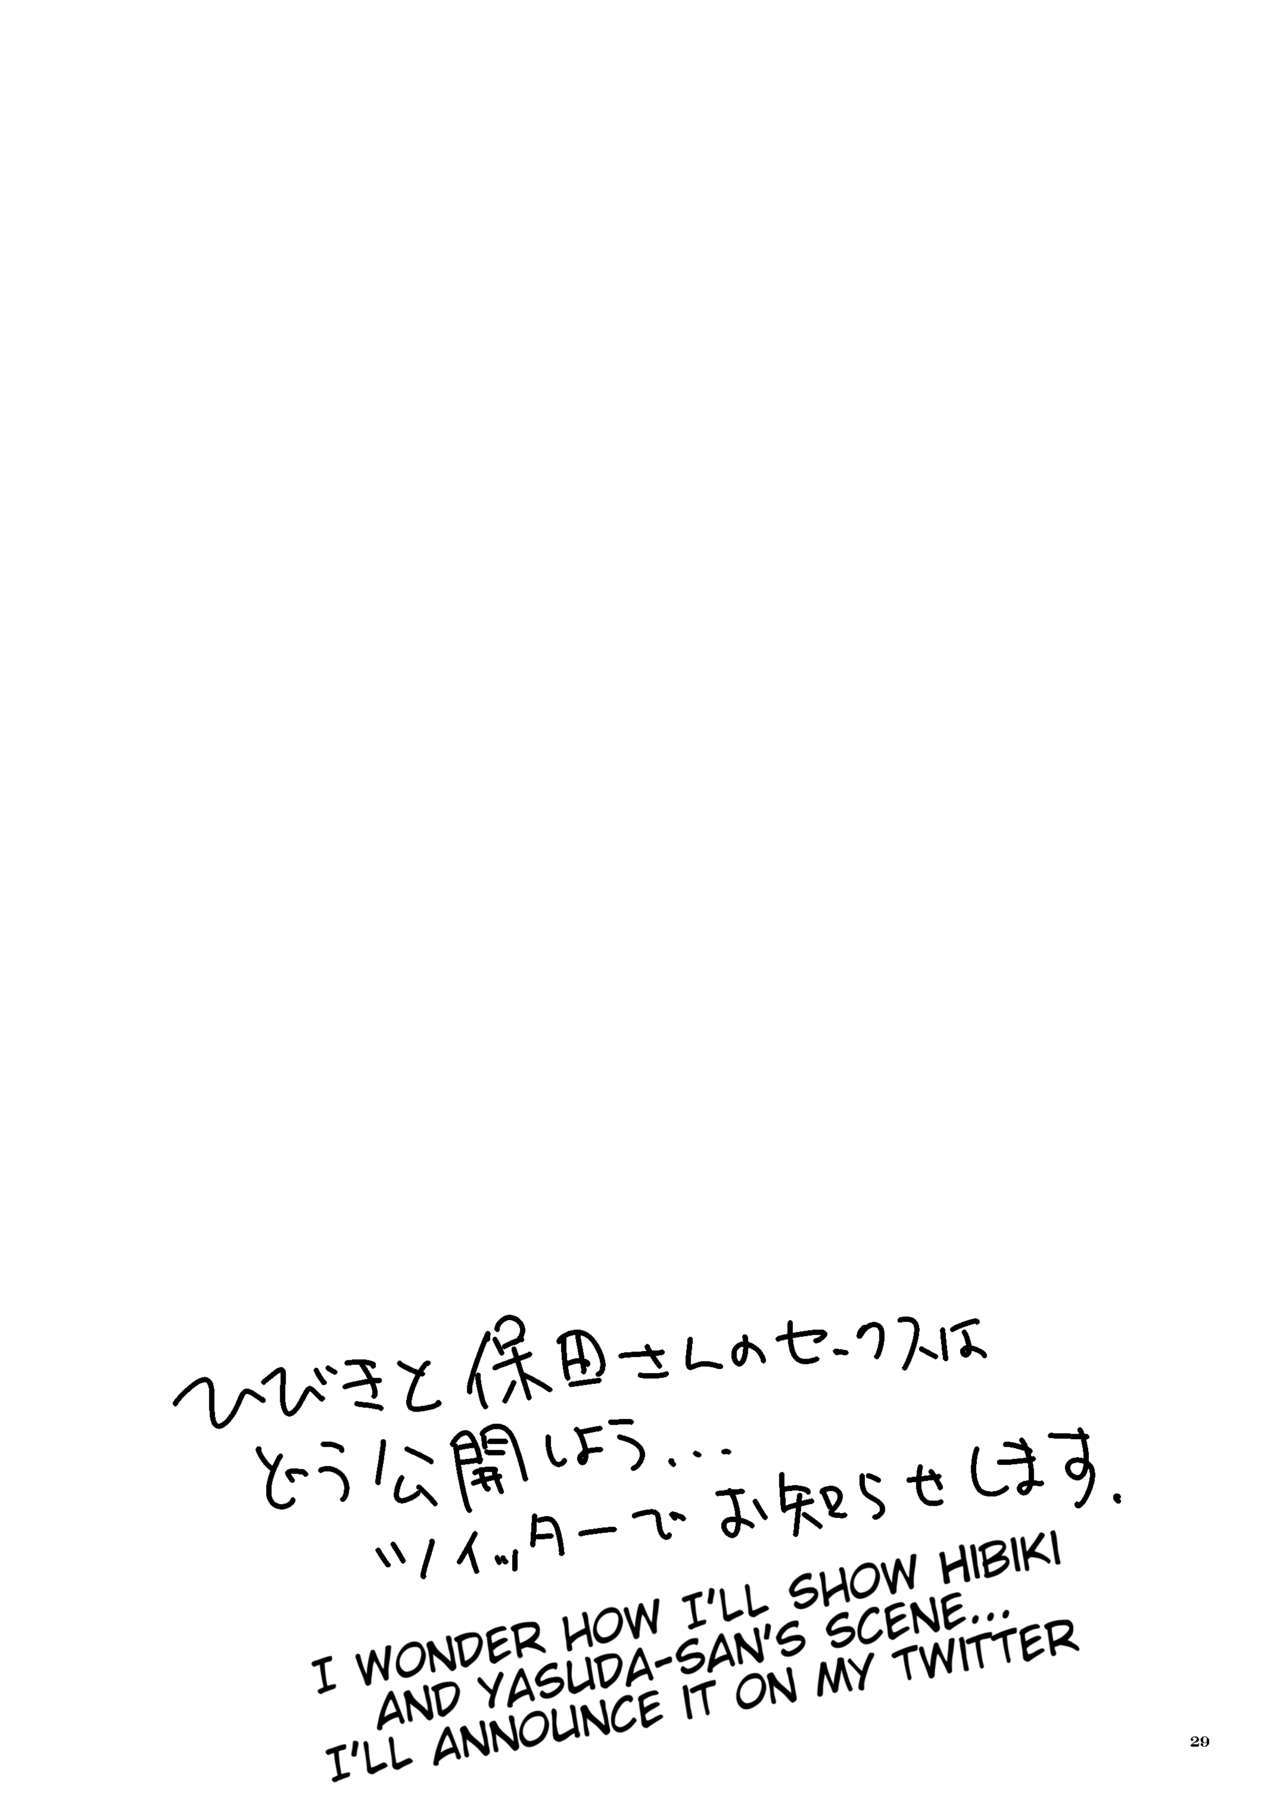 ひびきと保田さんのセックスは
どう公開しよう...
ツイッターでお知らせします.
I WONDER HOW I'LL SHOW HIBIKI
AND YASUDA-SAN'S SCENE...
I'LL ANNOUNCE IT ON MY TWITTER
29